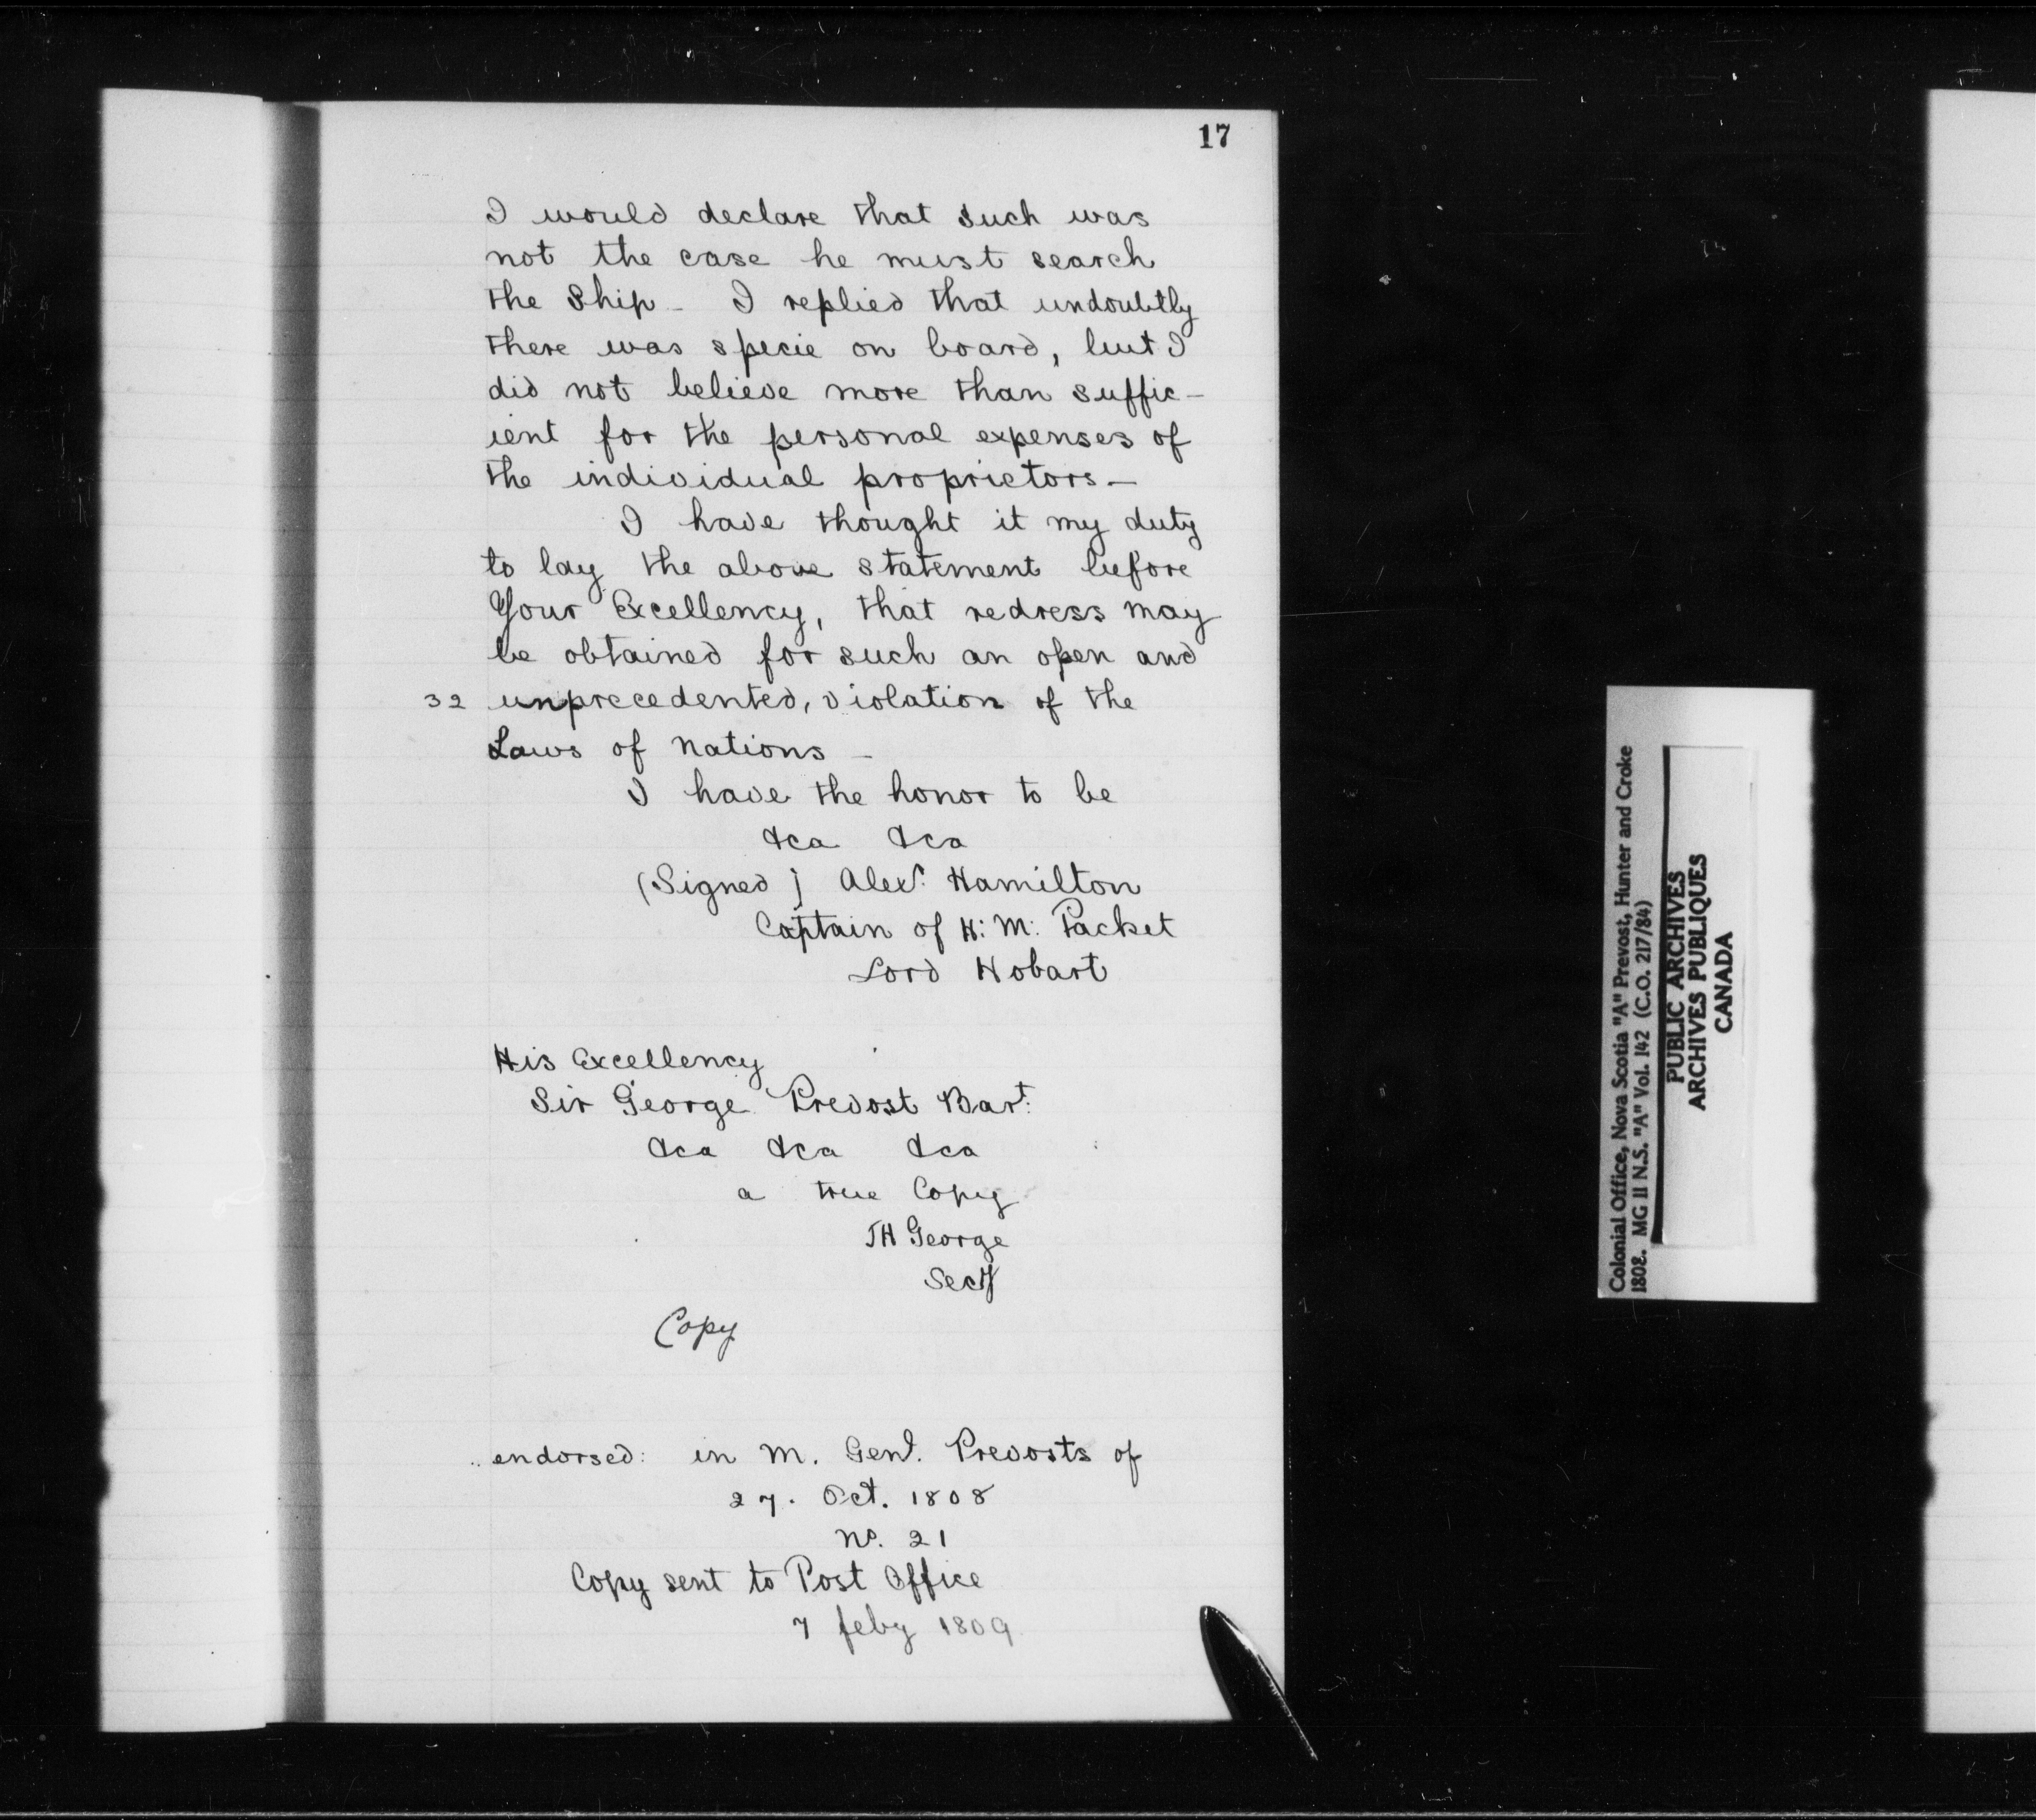 17
I would declare that such was
not the case he must search
the Ship - I replied that undoubtly
there was specie on board, but I
did not believe more than suffic-
ient for the personal expenses of
the individual proprietors. -
I have thought it my duty
to lay the above statement before
Your Excellency, that redress may
be obtained for such an open and
32 unprecedented, violation of the
Laws of Nations -
I have the honor to be
&ca &ca
(Signed) Alexr. Hamilton
Captain of H: M: Packet
Lord Hobart
His Excellency
Sir George Prevost Bart:
&ca &ca &ca
a true Copy
TH George
Secty
Copy
endorsed: in M. Genl. Prevosts of
27. Oct. 1808
No. 21
Copy sent to Post Office
7 feby 1809
Colonial Office, Nova Scotia "A" Prevost, Hunter and Croke
1808. MG 11 N.S. "A" Vol. 142 (C.O. 217/84)
PUBLIC ARCHIVES
ARCHIVES PUBLIQUES
CANADA